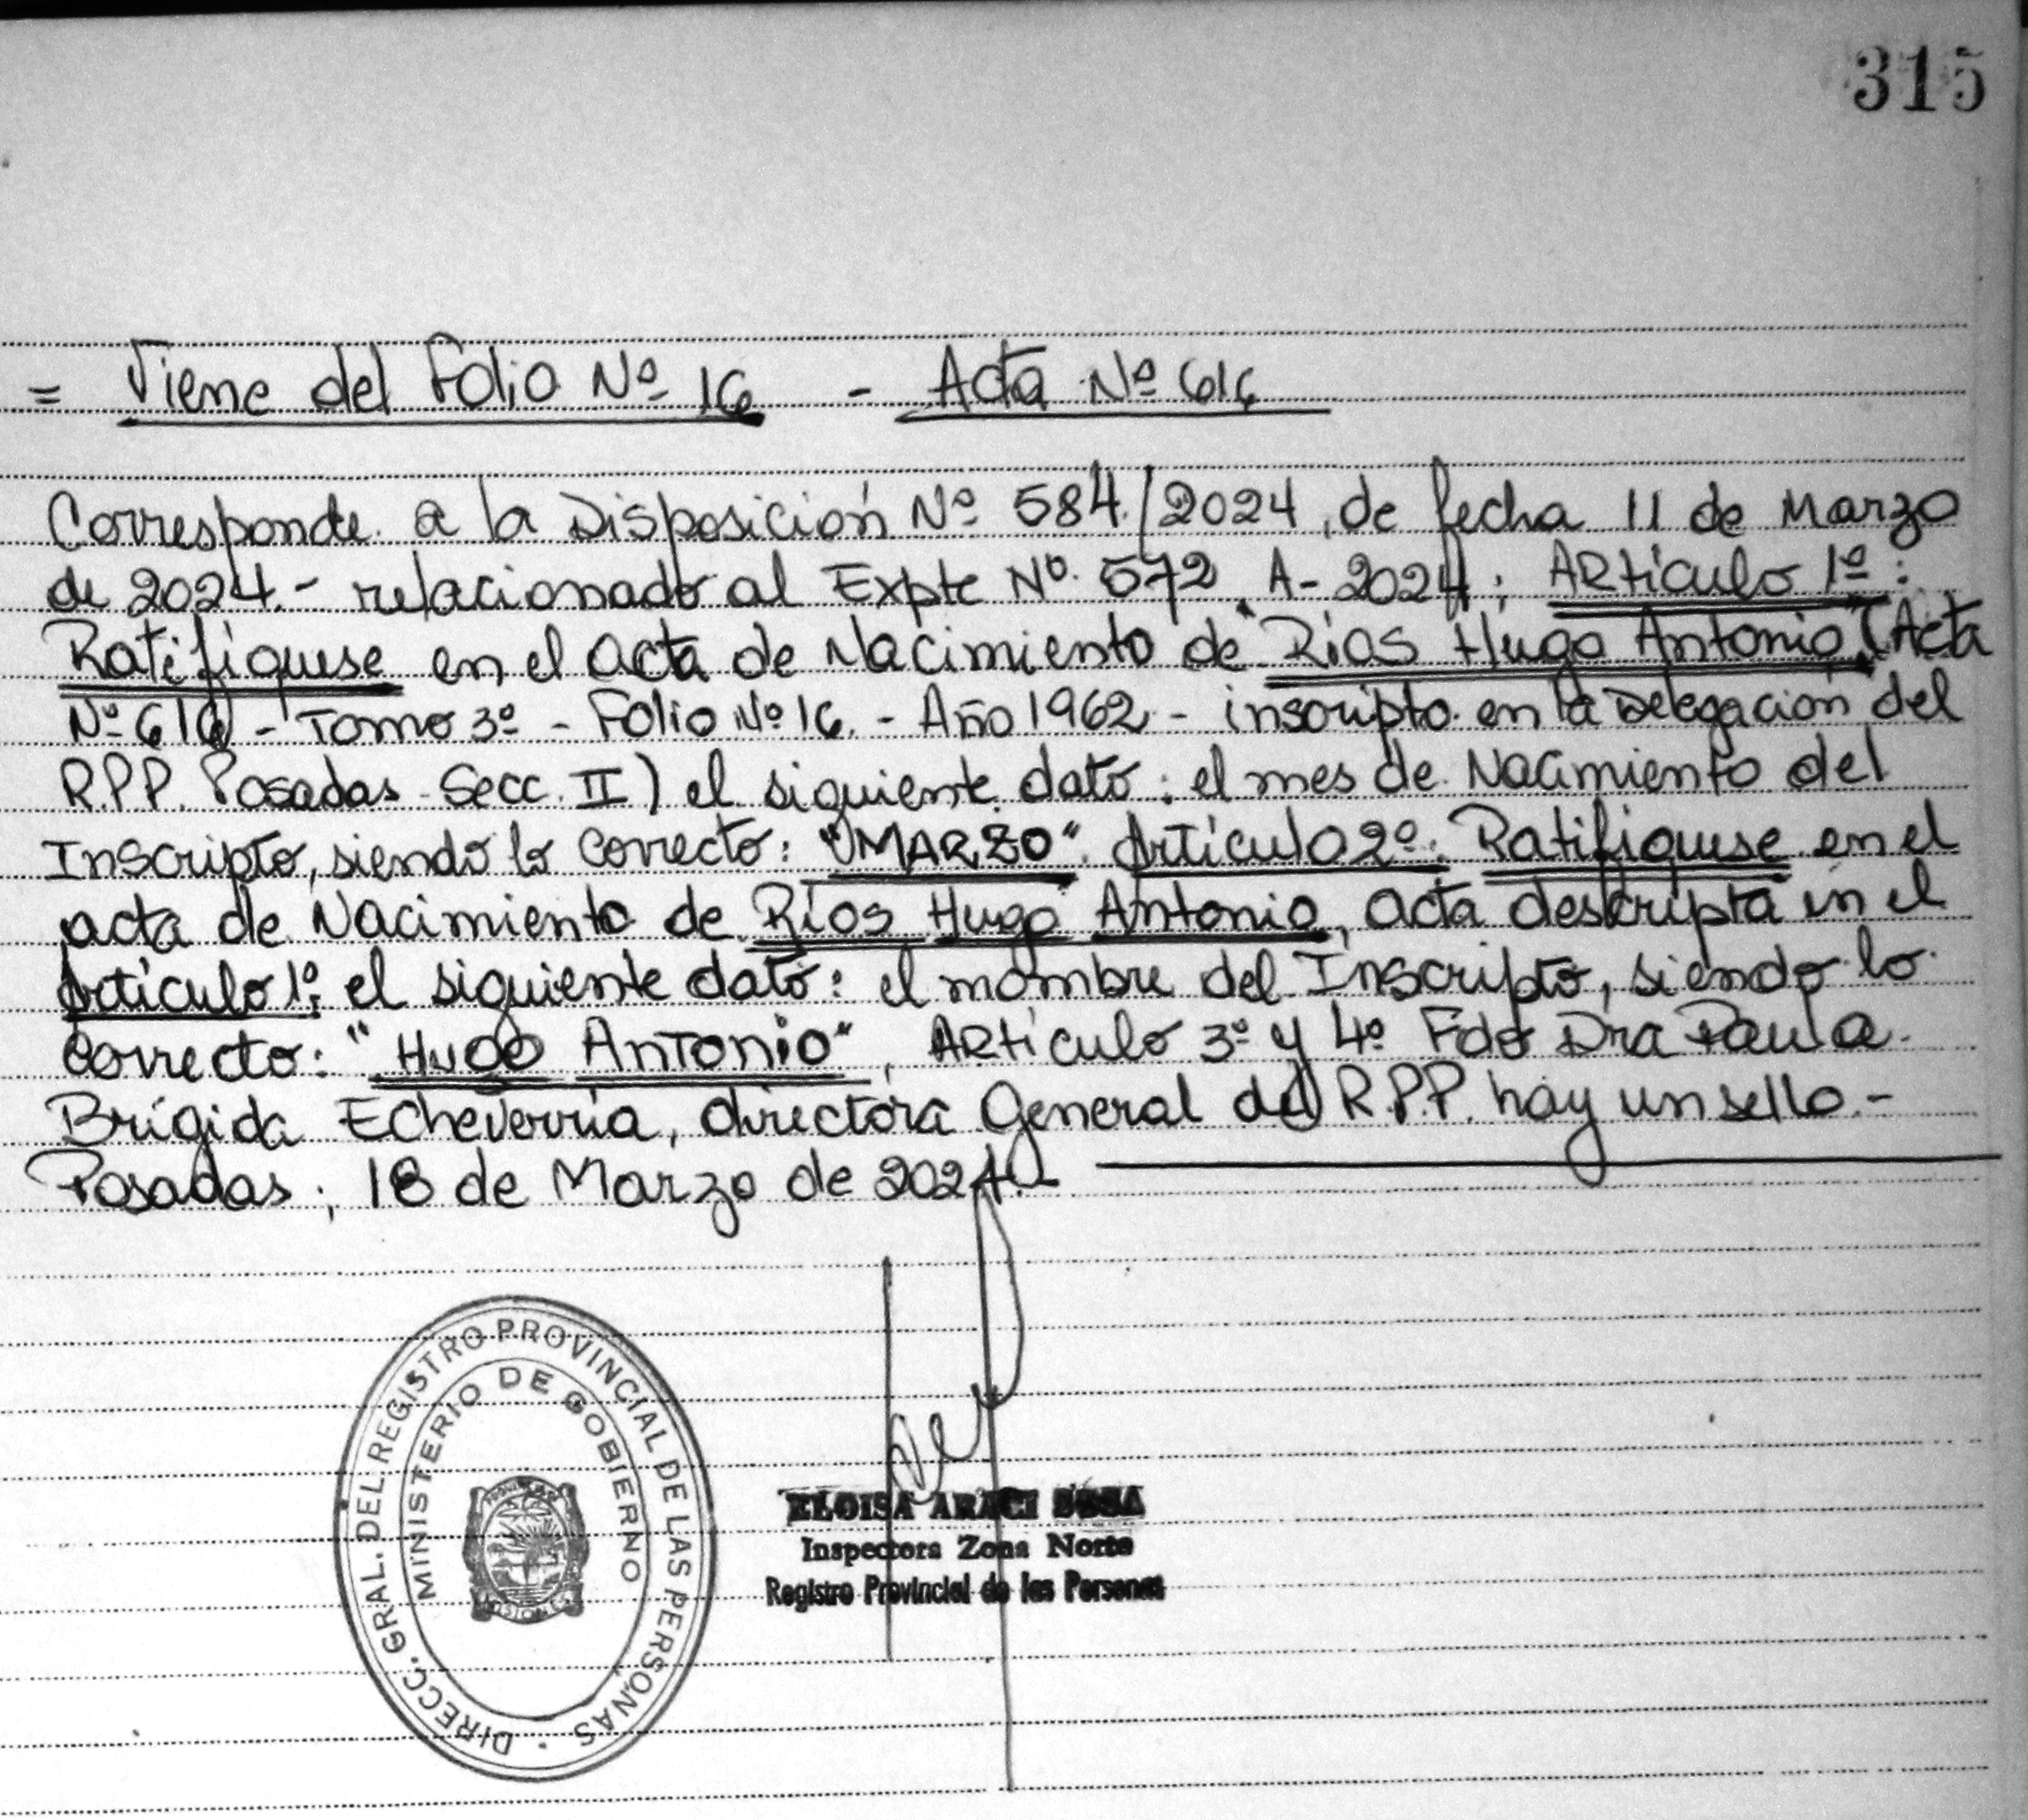 315
= Viene del Folio Nº 16 - Acta Nº 616
Corresponde a la Disposición Nº 584/2024, de fecha 11 de Marzo
de 2024.- relacionado al Expte Nº 572, A-2024; ARtículo 1º:
Ratifíquese en el acta de Nacimiento de Ríos Hugo Antonio (Acta
Nº 616 - Tomo 3º - Folio Nº 16. - Año 1962 - inscripto en la Delegación del
R.P.P. Posadas Secc. II) el siguiente dato: el mes de Nacimiento del
Inscripto, siendo lo correcto: "MARZO". Artículo 2º: Ratifíquese en el
acta de Nacimiento de Ríos Hugo Antonio, acta descripta en el
Artículo 1º; el siguiente dato: el nombre del Inscripto, siendo lo
correcto: "HUGO ANTONIO", ARtículo 3º y 4º Fdo Dra Paula
Brígida Echeverría, directora General del R.P.P. hay un sello.-
Posadas, 18 de Marzo de 2024.-
DIRECC. GRAL. DEL REGISTRO PROVINCIAL DE LAS PERSONAS
MINISTERIO DE GOBIERNO
MISIONES
ELOISA ARACI SOSA
Inspectora Zona Norte
Registro Provincial de las Personas